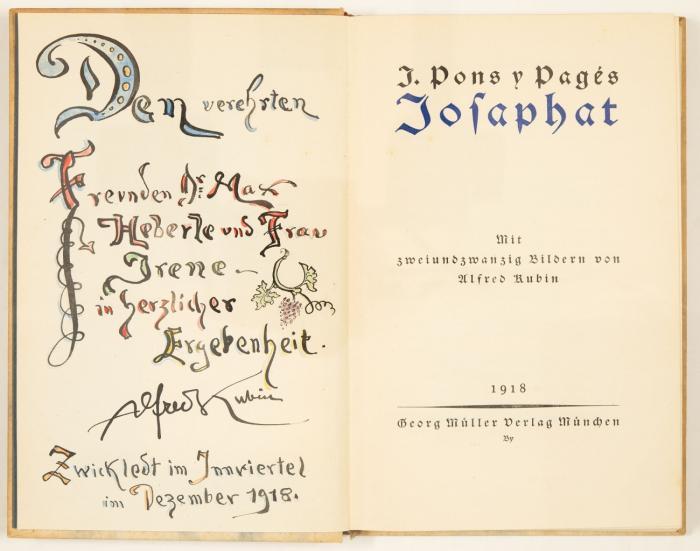 Dem verehrten
Freunden Dr. Max
Heberle und Frau
Irene –
in herzlicher
Ergebenheit.
Alfred Kubin
Zwickledt im Innviertel
im Dezember 1918.
J. Pons y Pagés
Joſaphat
Mit
zweiundzwanzig Bildern von
Alfred Kubin
1918
Georg Müller Verlag München
By